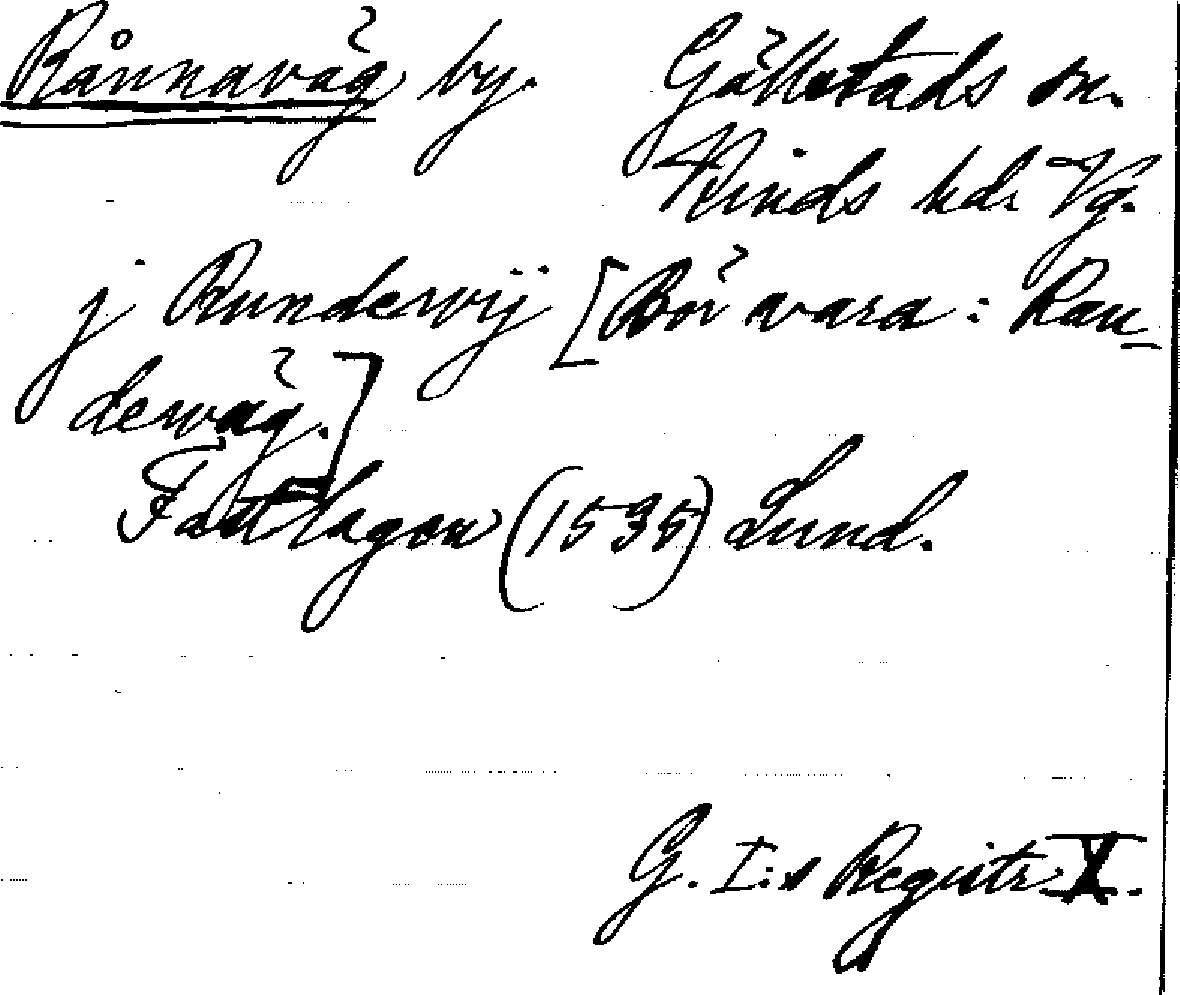 Rånnaväg by. Gällstads sn.
Kinds hd. Vg.
j Rundervij [Bör vara: Ran-
derväg.]
Fastlagen (1535) Lund.
G. I:s Registr. X.